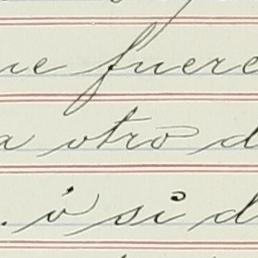 ue fuere
a otro d
. ó si d